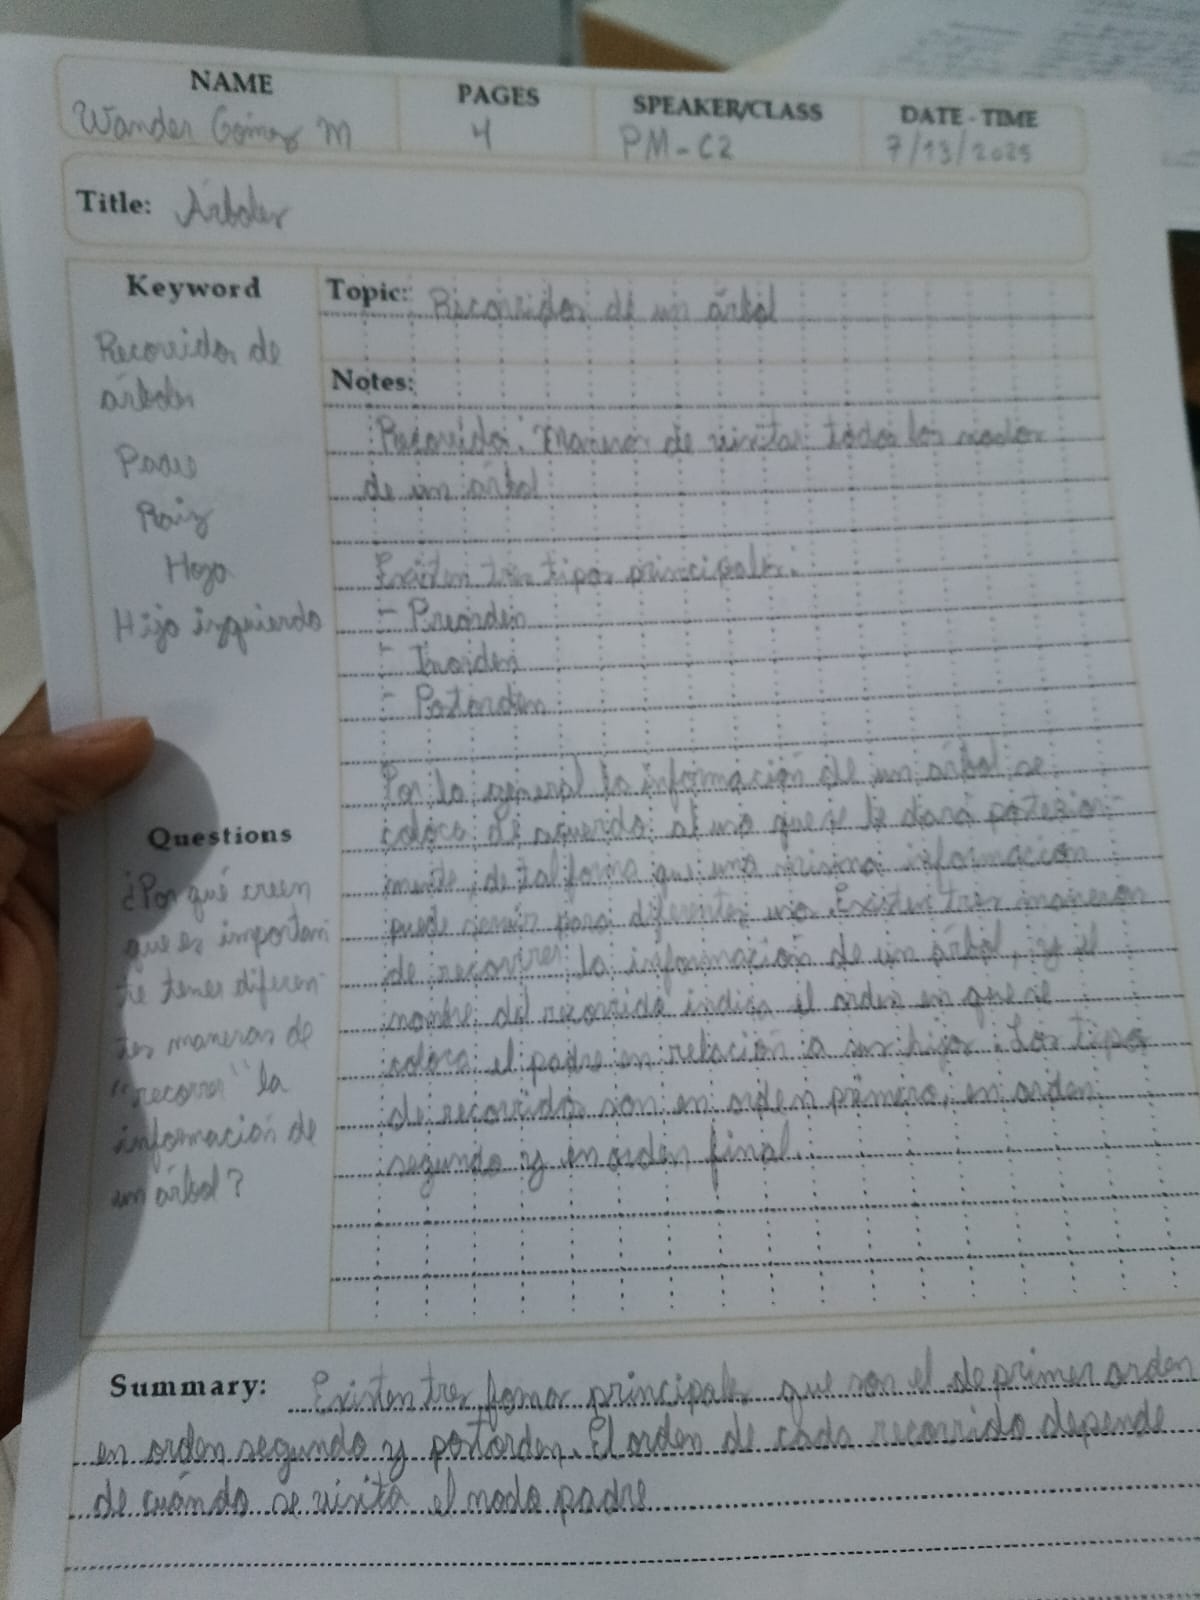 NAME PAGES SPEAKER/CLASS DATE - TIME
Wander Gómez M 4 PM-C2 7/13/2025
Title: Árboles
Keyword
Recorridos de
árboles
Padre
Raiz
Hoja
Hijo izquierdo
Questions
¿Por qué creen
que es importan
te tener diferen
tes maneras de
"recorrer" la
información de
un árbol?
Topic: Recorridos de un árbol
Notes:
Recorrido: Maneras de visitar todos los nodos
de un árbol
Existen tres tipos principales:
- Preorden
- Inorden
- Postorden
Por lo general la información de un árbol se
coloca de acuerdo al uso que se le dará posterior-
mente, de tal forma que una misma información
puede servir para diferentes usos. Existen tres maneras
de recorrer la información de un árbol, y el
nombre del recorrido indica el orden en que se
coloca el padre en relación a sus hijos. Los tipos
de recorridos son en orden primero, en orden
segundo y en orden final.
Summary: Existen tres formas principales que son el de primer orden
en orden segundo y postorden. El orden de cada recorrido depende
de cuándo se visita el nodo padre